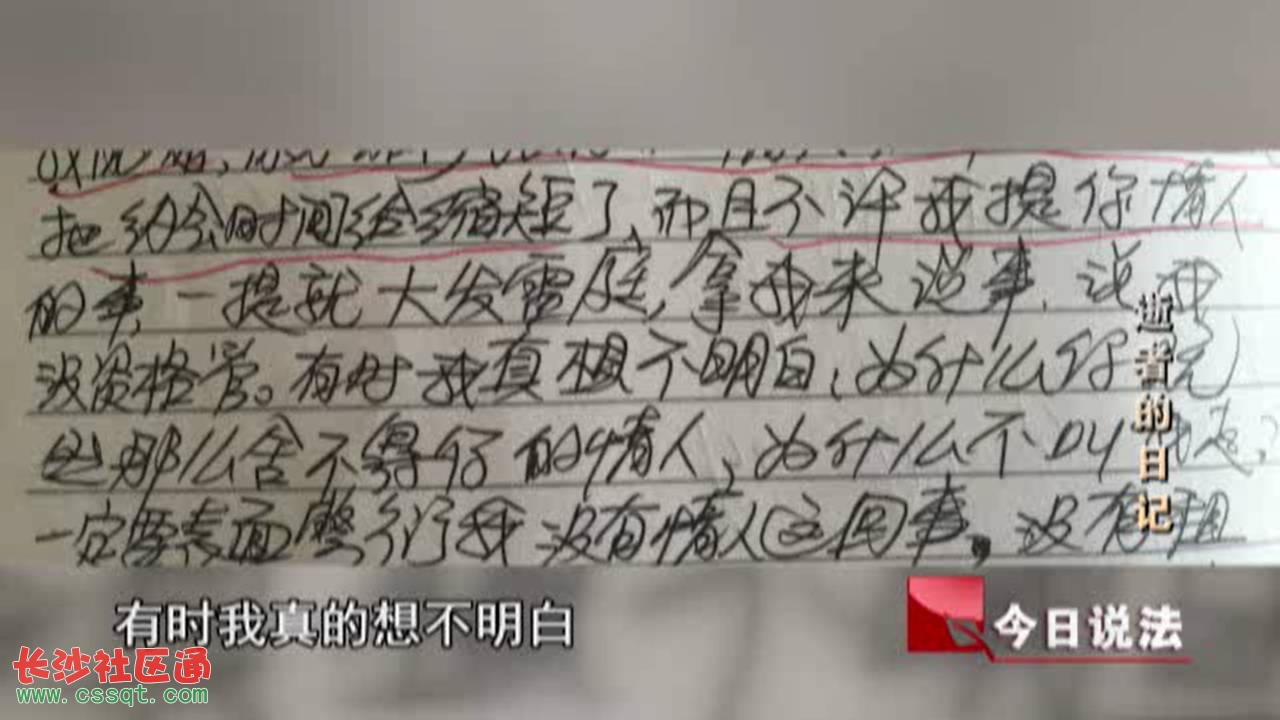 把约会时间给缩短了,而且不许我提你情人
的事,一提就大发雷庭,拿我来说事,说我
没资格管。有时我真想不明白,为什么你
那么舍不得你的情人,为什么不
一定要表面 我没有情人这回事。没有
逝者的日记
有时我真的想不明白
今日说法
长沙社区通
www.cssqt.com